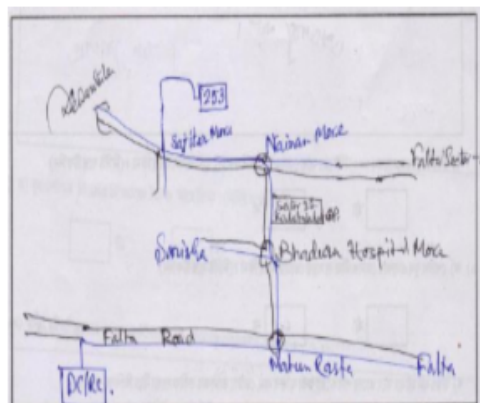 253
Sajilar More
Nainan More
Falta Sector
Sarisha
Bhadura Hospital More
Falta Road
Natun Rasta
Falta
DC/RC.